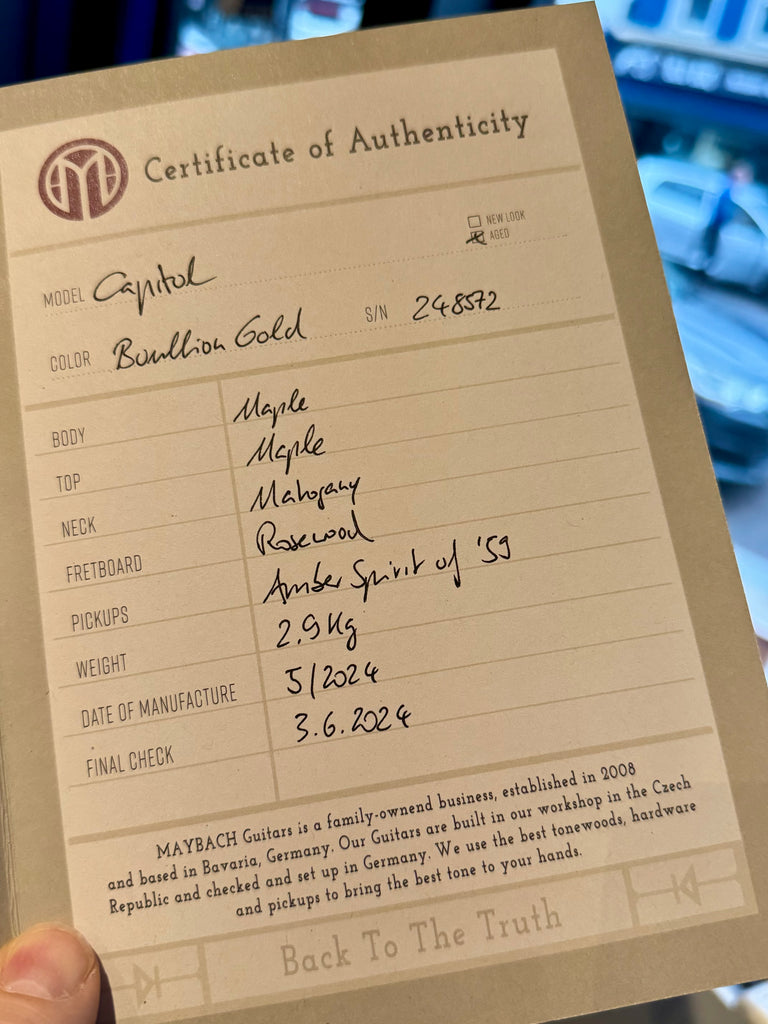 Certificate of Authenticity
NEW LOOK
AGED
MODEL Capitol
COLOR Boullion Gold S/N 248572
BODY Maple
TOP Maple
NECK Mahogany
FRETBOARD Rosewood
PICKUPS Amber Spirit of '59
WEIGHT 2.9 Kg
DATE OF MANUFACTURE 5/2024
FINAL CHECK 3.6.2024
MAYBACH Guitars is a family-ownend business, established in 2008
and based in Bavaria, Germany. Our Guitars are built in our workshop in the Czech
Republic and checked and set up in Germany. We use the best tonewoods, hardware
and pickups to bring the best tone to your hands.
Back To The Truth